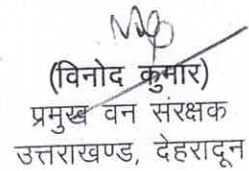 (विनोद कुमार)
प्रमुख वन संरक्षक
उत्तराखण्ड, देहरादून